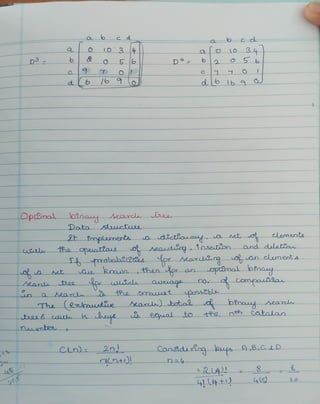 a b c d
a b c d
a 0 10 3 4
a 0 10 3 4
D³ = b 2 0 5 6
D⁴ = b 2 0 5 6
c 9 7 0 1
c 7 7 0 1
d 6 16 9 0
d 6 16 9 0
Optimal binary search tree
Data structure
It implements a dictionary, a set of elements
with the operations of searching, insertion and deletion
If probabilities for searching of an element's
of a set are known, then for an optimal binary
search tree for which average no. of comparisons
in a search is the smallest possible
The (exhaustive search) total of binary search
trees with k keys is equal to the nth catalan
number,
C(n) = 2n! Considering keys A, B, C & D
n!(n+1)! n=4
= 2(4)! = 8 = 8
4! (4+1)! 4(5) 20